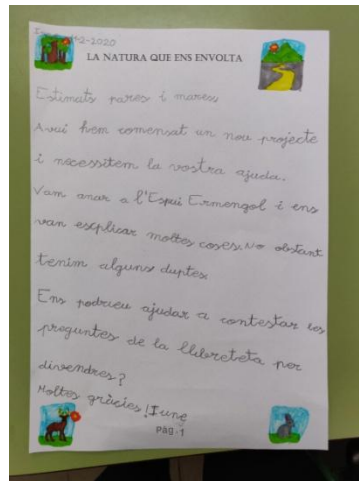 -2-2020
LA NATURA QUE ENS ENVOLTA
Estimats pares i mares
Avui hem comensat un nou projecte
i necessitem la vostra ajuda.
Vam anar a l'Espai Ermengol i ens
van esplicar moltes coses. No obstant
tenim alguns duptes
Ens podrieu ajudar a contestar les
preguntes de la llibreteta per
divendres?
Moltes gràcies! June
Pàg-1